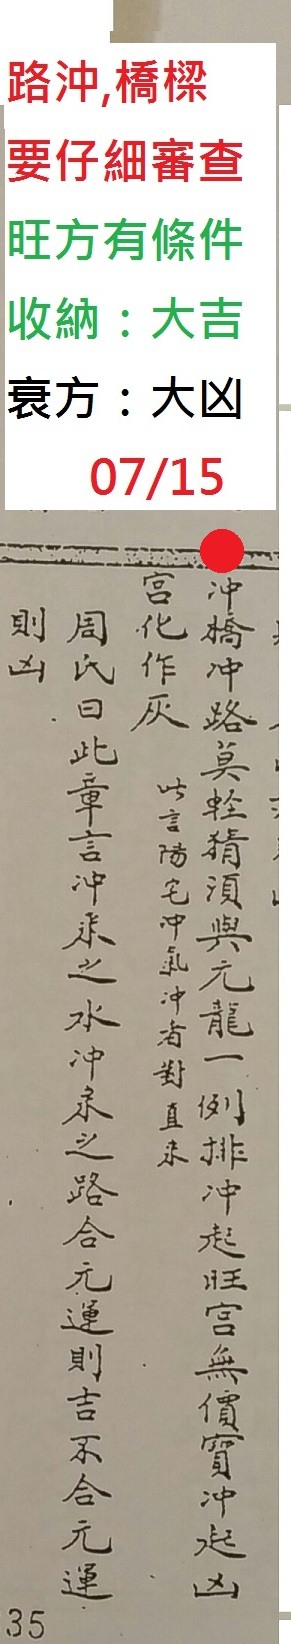 路沖,橋樑
要仔細審查
旺方有條件
收納：大吉
衰方：大凶
07/15
冲橋冲路莫輕猜須與元龍一例排冲起旺宮無價寶冲起凶
宮化作灰
此言陽宅冲氣冲者對直來
周氏曰此章言冲來之水冲來之路合元運則吉不合元運
則凶
35